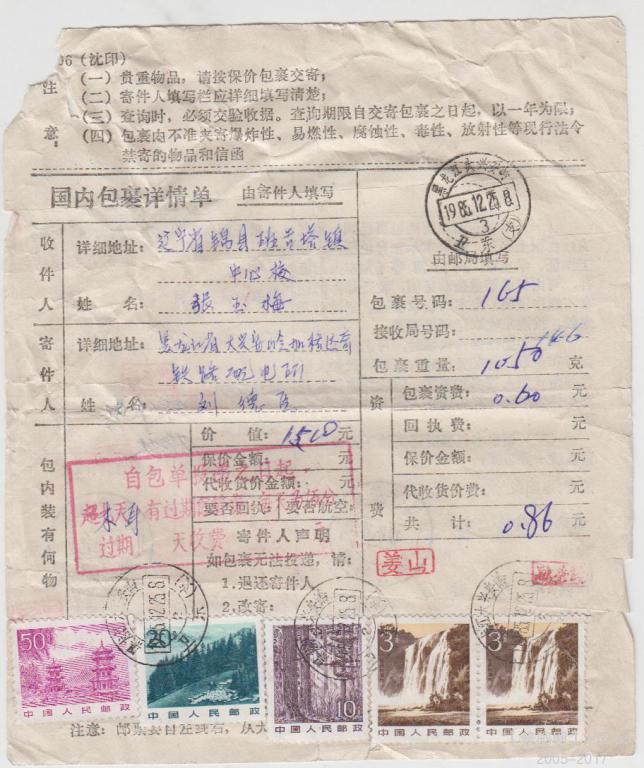 96 (沈印)
注意：
(一) 贵重物品，请按保价包裹交寄；
(二) 寄件人填写栏应详细填写清楚；
(三) 查询时，必须交验收据。查询期限自交寄包裹之日起，以一年为限；
(四) 包裹内不准夹寄爆炸性、易燃性、腐蚀性、毒性、放射性等现行法令
禁寄的物品和信函
国内包裹详情单 由寄件人填写
1985.12.25.8
3
由邮局填写
收件人
详细地址：辽宁省锦县班吉塔镇
中心校
姓名：张玉梅
寄件人
详细地址：黑龙江省大兴安岭加格达奇
铁路
姓名：刘德
包裹号码：165
接收局号码：166
包裹重量：1050 克
资费
包裹资费：0.60 元
回执费： 元
保价金额： 元
代收货价费： 元
共计：0.86 元
包内装有何物
木耳
价值：15.00 元
保价金额： 元
代收货价金额： 元
要否回执： 要否航空：
寄件人声明
如包裹无法投递，请：
1.退还寄件人
2.改寄：
自包单投
过期 天收费 元
姜山
50
中国人民邮政
20
中国人民邮政
10
中国人民邮政
3
中国人民邮政
3
中国人民邮政
注意：邮票要自左
2005-2017